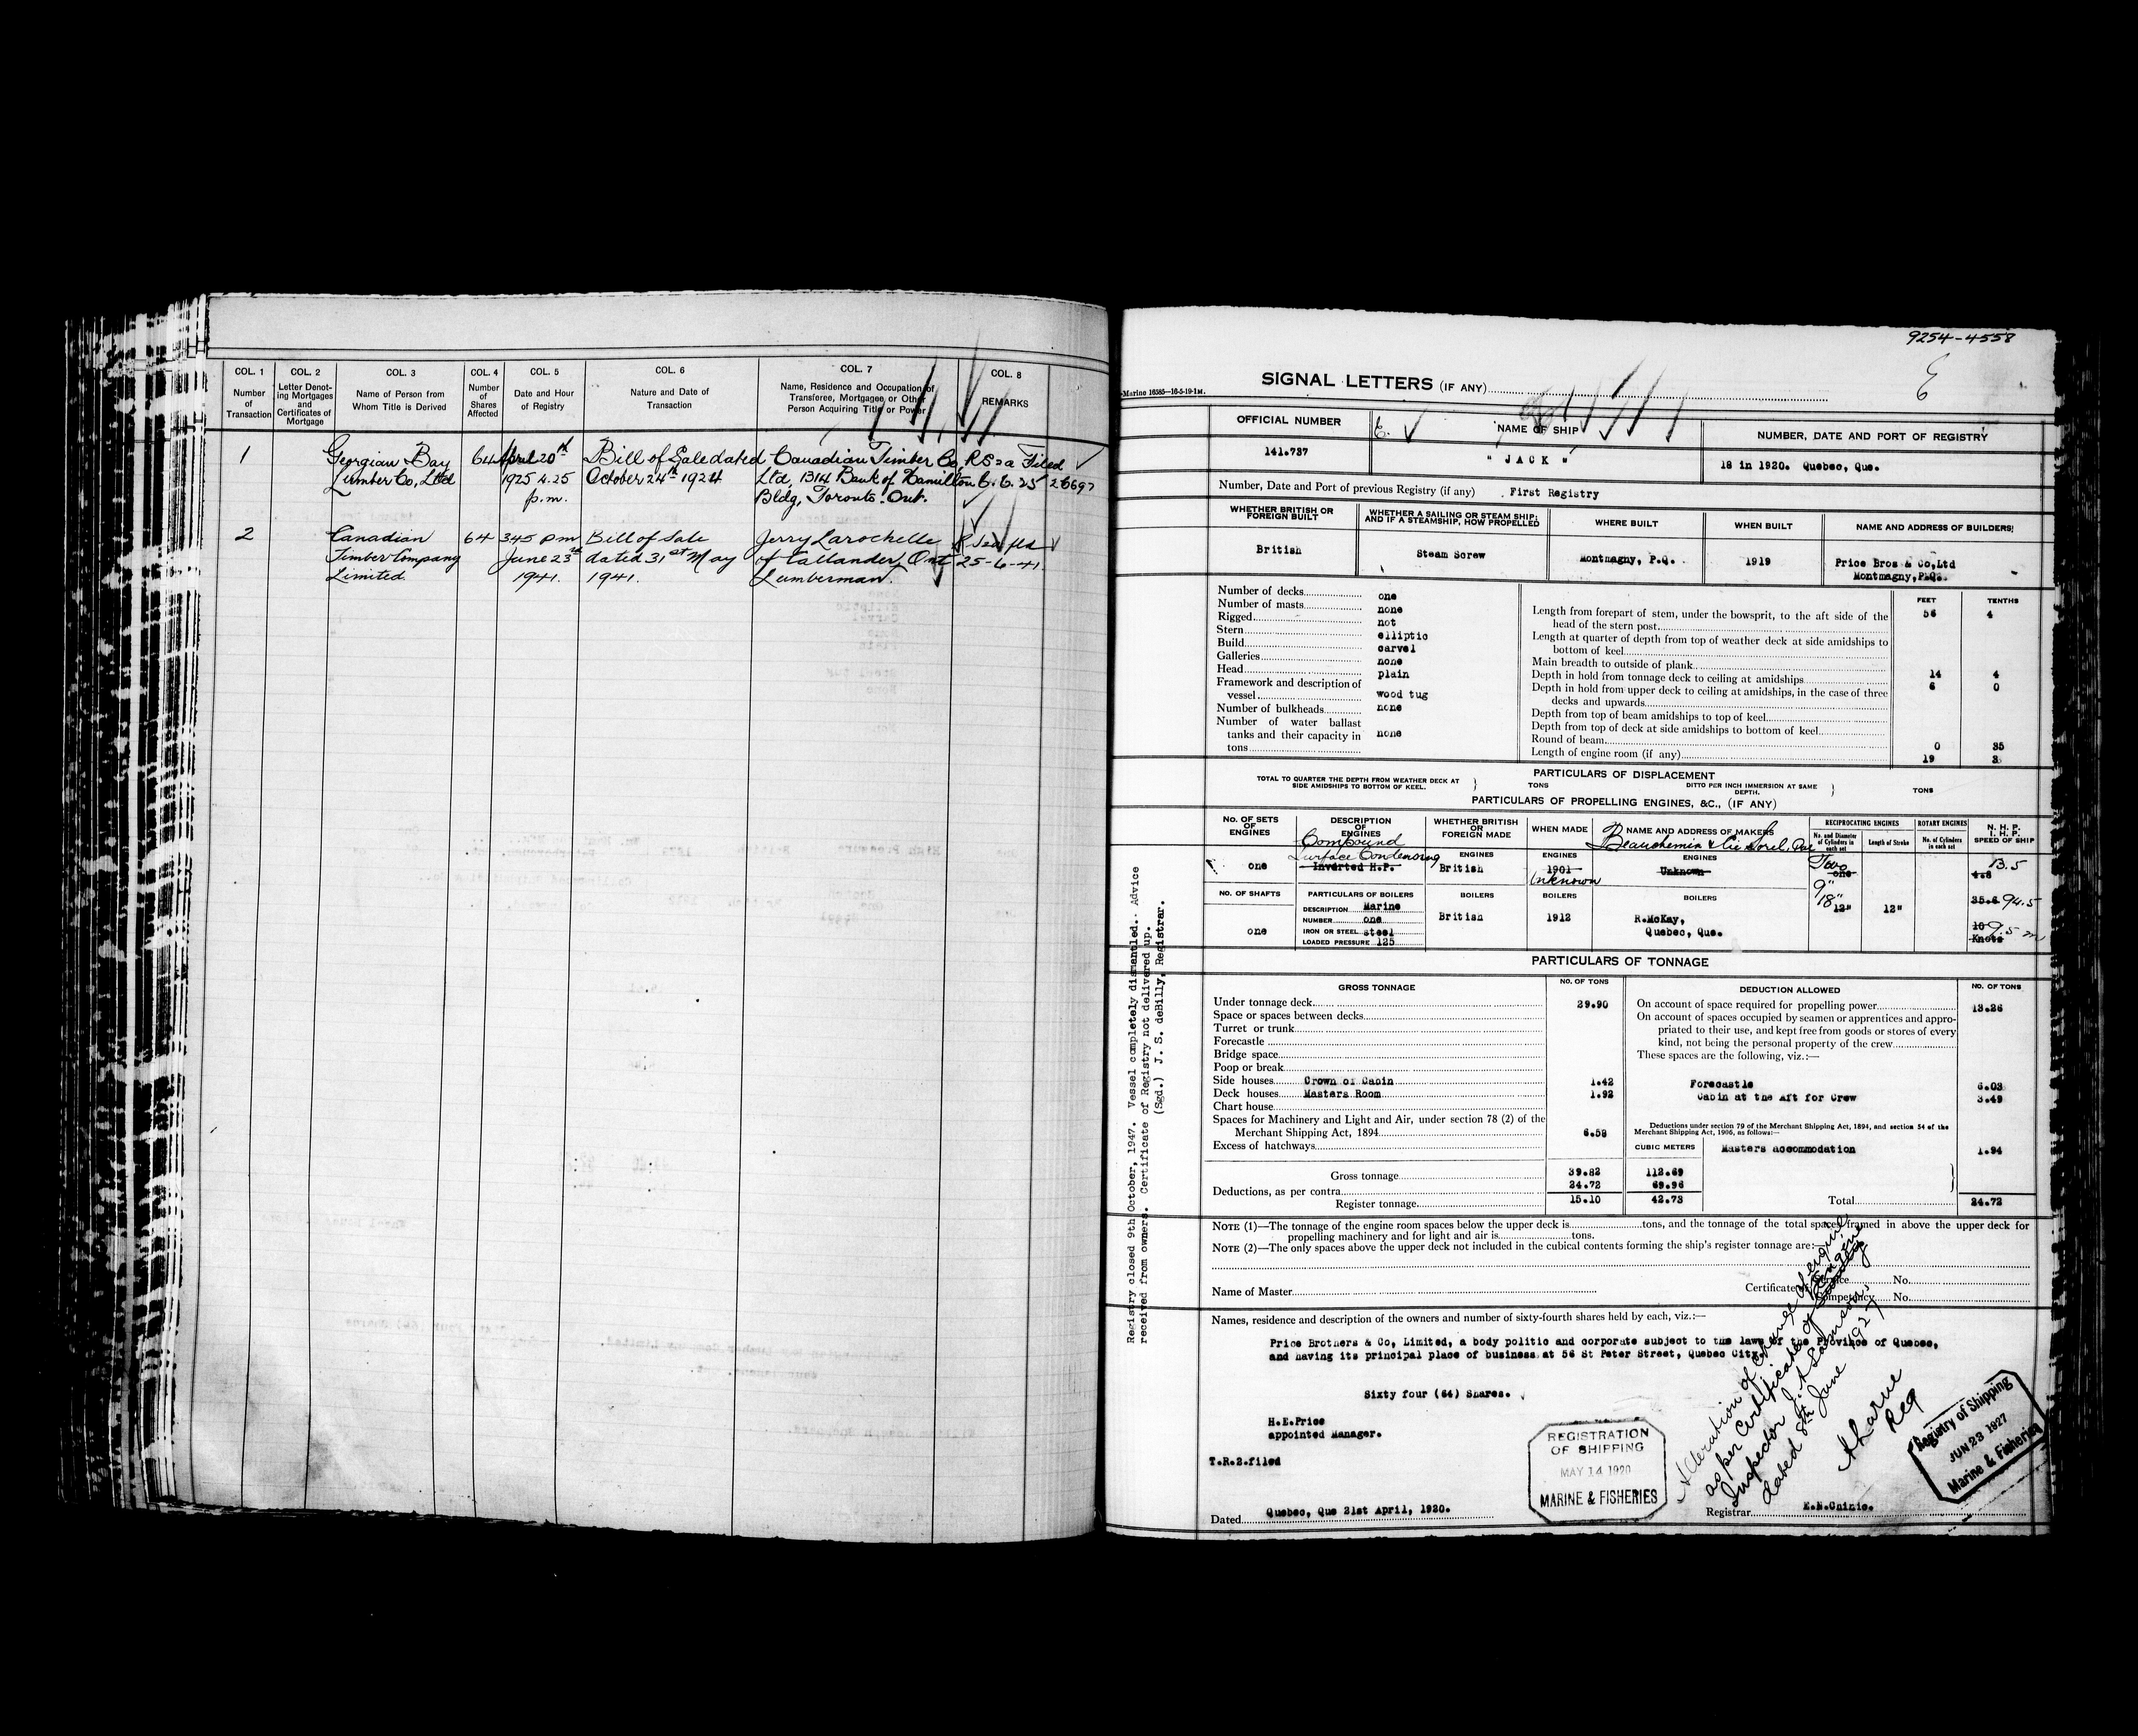 COL. 1
Number
of
Transaction
COL. 2
Letter Denot-
ing Mortgages
and
Certificates of
Mortgage
COL. 3
Name of Person from
Whom Title is Derived
COL. 4
Number
of
Shares
Affected
COL. 5
Date and Hour
of Registry
COL. 6
Nature and Date of
Transaction
COL. 7
Name, Residence and Occupation of
Transferee, Mortgagee or Other
Person Acquiring Title or Power
COL. 8
REMARKS
1
Georgian Bay
Lumber Co, Ltd
64
April 20th
1925 4.25
p.m.
Bill of Sale dated
October 24th 1924
Canadian Timber Co,
Ltd, 1314 Bank of Hamilton
Bldg, Toronto. Ont.
RS 2a Filed
6.6.25 26697
2
Canadian
Timber Company
Limited.
64
345 pm
June 23rd
1941.
Bill of Sale
dated 31st May
1941.
Jerry Larochelle
of Callander, Ont
Lumberman.
25-6-41.
9254-4558
SIGNAL LETTERS (IF ANY)
-Marine 16585-16-5-19-1M.
OFFICIAL NUMBER
141.737
NAME OF SHIP
" JACK "
NUMBER, DATE AND PORT OF REGISTRY
18 in 1920. Quebec, Que.
Number, Date and Port of previous Registry (if any) First Registry
WHETHER BRITISH OR
FOREIGN BUILT
British
WHETHER A SAILING OR STEAM SHIP;
AND IF A STEAMSHIP, HOW PROPELLED
Steam Screw
WHERE BUILT
Montmagny, P.Q.
WHEN BUILT
1919
NAME AND ADDRESS OF BUILDERS
Price Bros & Co,Ltd
Montmagny,P.Q.
Number of decks one
Number of masts none
Rigged not
Stern elliptic
Build carvel
Galleries none
Head plain
Framework and description of
vessel wood tug
Number of bulkheads none
Number of water ballast
tanks and their capacity in
tons none
FEET TENTHS
Length from forepart of stem, under the bowsprit, to the aft side of the
head of the stern post 56 4
Length at quarter of depth from top of weather deck at side amidships to
bottom of keel
Main breadth to outside of plank 14 4
Depth in hold from tonnage deck to ceiling at amidships 6 0
Depth in hold from upper deck to ceiling at amidships, in the case of three
decks and upwards
Depth from top of beam amidships to top of keel
Depth from top of deck at side amidships to bottom of keel
Round of beam 0 35
Length of engine room (if any) 19 3
PARTICULARS OF DISPLACEMENT
TOTAL TO QUARTER THE DEPTH FROM WEATHER DECK AT
SIDE AMIDSHIPS TO BOTTOM OF KEEL.
TONS
DITTO PER INCH IMMERSION AT SAME
DEPTH.
TONS
PARTICULARS OF PROPELLING ENGINES, &C., (IF ANY)
No. OF SETS
OF
ENGINES
one
DESCRIPTION
OF
ENGINES
Compound
Surface Condensing
Inverted H.P.
WHETHER BRITISH
OR
FOREIGN MADE
ENGINES
British
WHEN MADE
ENGINES
1901
Unknown
NAME AND ADDRESS OF MAKERS
Beauchemin & Cie Sorel, Que
ENGINES
Unknown
RECIPROCATING ENGINES
No. and Diameter
of Cylinders in
each set
Length of Stroke
Two
one
9"
18"
12"
12"
ROTARY ENGINES
No. of Cylinders
in each set
N. H. P.
I. H. P.
SPEED OF SHIP
13.5
4.8
35.6 94.5
10 9.5 m
Knots
NO. OF SHAFTS
one
PARTICULARS OF BOILERS
DESCRIPTION Marine
NUMBER one
IRON OR STEEL steel
LOADED PRESSURE 125
BOILERS
British
BOILERS
1912
BOILERS
R.McKay,
Quebec, Que.
PARTICULARS OF TONNAGE
GROSS TONNAGE
NO. OF TONS
Under tonnage deck 29.90
Space or spaces between decks
Turret or trunk
Forecastle
Bridge space
Poop or break
Side houses Crown of Cabin 1.42
Deck houses Masters Room 1.92
Chart house
Spaces for Machinery and Light and Air, under section 78 (2) of the
Merchant Shipping Act, 1894 6.58
Excess of hatchways
CUBIC METERS
Gross tonnage 39.82 112.69
Deductions, as per contra 24.72 69.96
Register tonnage 15.10 42.73
DEDUCTION ALLOWED
NO. OF TONS
On account of space required for propelling power 13.26
On account of spaces occupied by seamen or apprentices and appro-
priated to their use, and kept free from goods or stores of every
kind, not being the personal property of the crew
These spaces are the following, viz.:—
Forecastle 6.03
Cabin at the Aft for Crew 3.49
Deductions under section 79 of the Merchant Shipping Act, 1894, and section 54 of the
Merchant Shipping Act, 1906, as follows:—
Masters accommodation 1.94
Total 24.72
NOTE (1)—The tonnage of the engine room spaces below the upper deck is tons, and the tonnage of the total spaces framed in above the upper deck for
propelling machinery and for light and air is tons.
NOTE (2)—The only spaces above the upper deck not included in the cubical contents forming the ship's register tonnage are:—
Name of Master
Certificate of
Service No.
Competency No.
Names, residence and description of the owners and number of sixty-fourth shares held by each, viz.:—
Price Brothers & Co, Limited, a body politic and corporate subject to the laws of the Province of Quebec,
and having its principal place of business at 56 St Peter Street, Quebec City.
Sixty four (64) Shares.
H.E.Price
appointed Manager.
T.R.2.filed
Dated Quebec, Que 21st April, 1920.
Registrar E.N.Chinic.
REGISTRATION
OF SHIPPING
MAY 14 1920
MARINE & FISHERIES
Alteration of change of engine
as per certificate of
Inspector J. A. Samson,
dated 8th June 1927
A Larue
Reg
Registry of Shipping
JUN 23 1927
Marine & Fisheries
Registry closed 9th October, 1947. Vessel completely dismantled. Advice
received from owners. Certificate of Registry not delivered up.
(Sgd.) J. S. deBilly, Registrar.